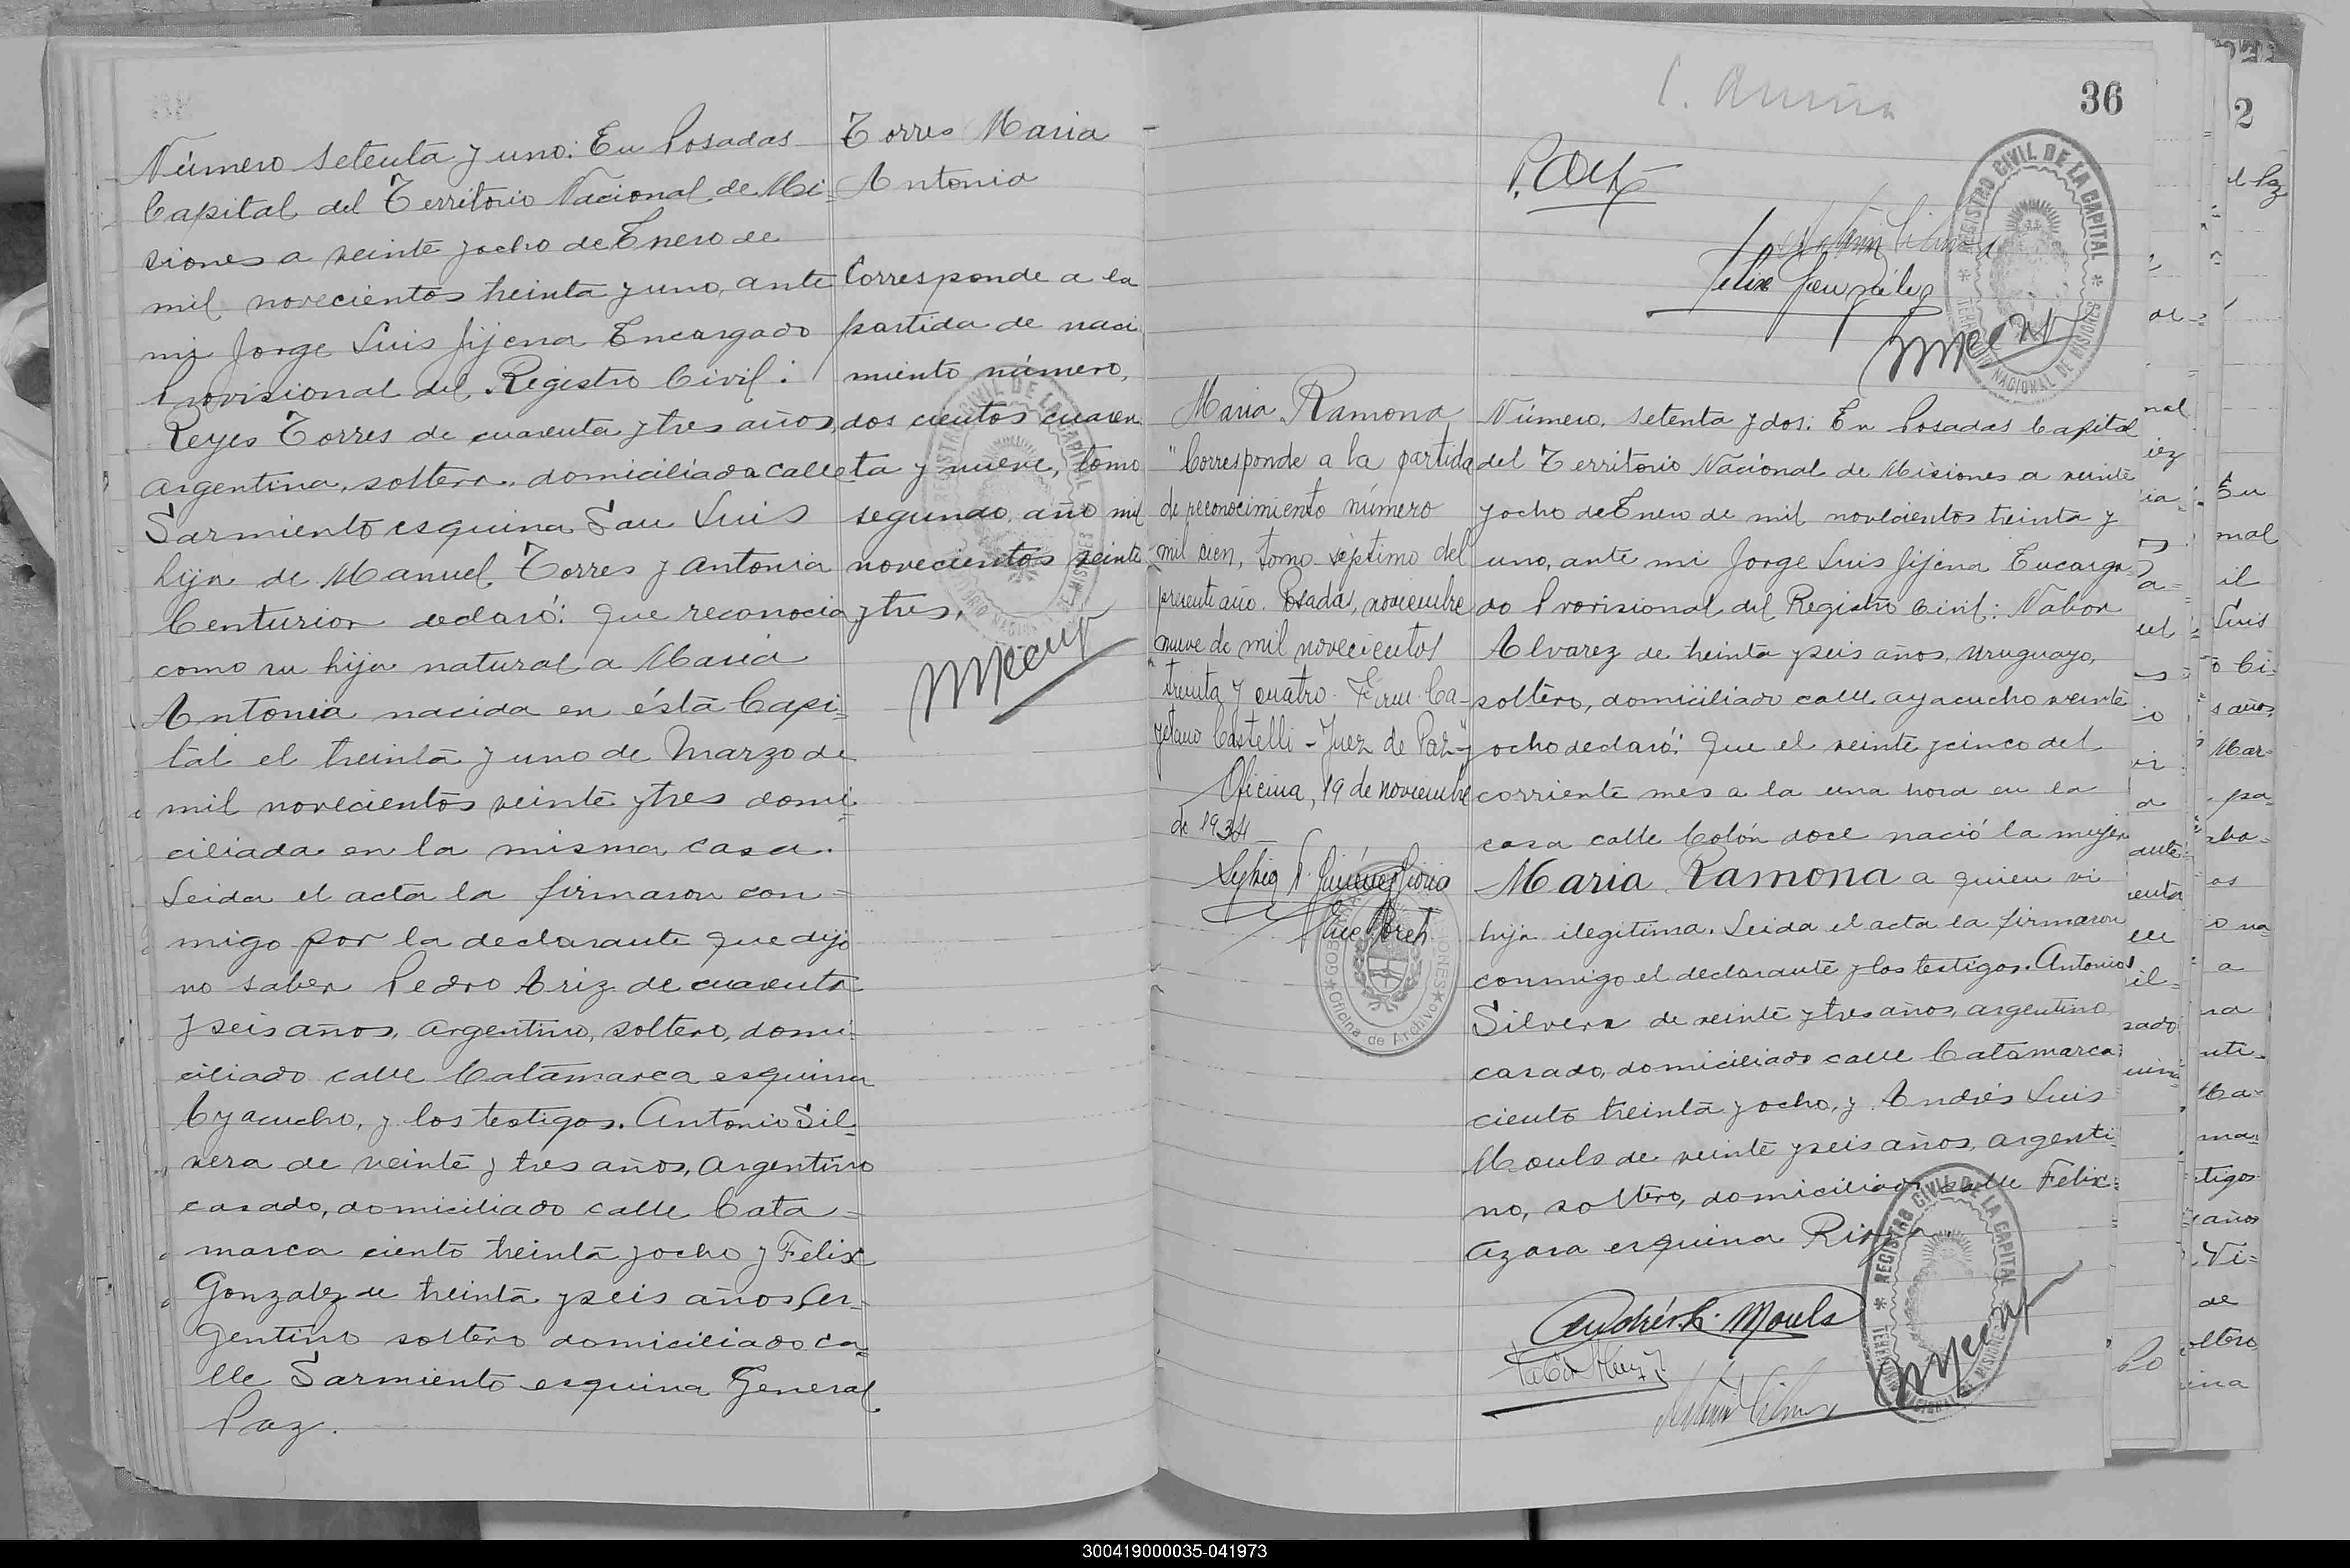 Número setenta y uno: En Posadas
Capital del Territorio Nacional de Mi=
siones a veinte y ocho de Enero de
mil novecientos treinta y uno, ante
mi Jorge Luis Jijena Encargado
Provisional del Registro Civil:
Reyes Torres de cuarenta y tres años,
argentina, soltera, domiciliada calle
Sarmiento esquina San Luis
hija de Manuel Torres y Antonia
Centurion declaró: Que reconocia
como su hija natural a Maria
Antonia nacida en ésta Capi=
tal el treinta y uno de Marzo de
mil novecientos veinte y tres domi=
ciliada en la misma casa.
Leida el acta la firmaron con=
migo por la declarante que dijo
no saber Pedro Ariz de cuarenta
y seis años, argentino, soltero, domi=
ciliado calle Catamarca esquina
Ayacucho, y los testigos. Antonio Sil=
vera de veinte y tres años, Argentino
casado, domiciliado calle Cata=
marca ciento treinta y ocho y Felix
Gonzalez de treinta y seis años, ar=
gentino soltero domiciliado ca=
lle Sarmiento esquina General
Paz.
Torres Maria
Antonia
Corresponde a la
partida de naci
miento número,
dos cientos cuaren
ta y nueve, tomo
segundo, año mil
novecientos veinte
y tres.
36
Felix Gonzalez
REGISTRO CIVIL DE LA CAPITAL
TERRITORIO NACIONAL DE MISIONES
Maria Ramona
"Corresponde a la partida
de reconocimiento número
mil cien, tomo séptimo del
presente año. Posadas, noviembre
nueve de mil novecientos
treinta y cuatro. Firm. Ca-
yetano Castelli - Juez de Paz-"
Oficina, 19 de noviembre
de 1934
Oficina de Archivo
Número, setenta y dos: En Posadas Capital
del Territorio Nacional de Misiones a veinte
y ocho de Enero de mil novecientos treinta y
uno, ante mi Jorge Luis Jijena Encarga=
do Provisional del Registro Civil: Nabor
Alvarez de treinta y seis años, uruguayo,
soltero, domiciliado calle ayacucho veinte
y ocho declaró: Que el veinte y cinco del
corriente mes a la una hora en la
casa calle Colón doce nació la mujer
Maria Ramona a quien vi
hija ilegitima. Leida el acta la firmaron
conmigo el declarante y los testigos. Antonio
Silvera de veinte y tres años, argentino,
casado, domiciliado calle Catamarca
ciento treinta y ocho, y Andrés Luis
Mouls de veinte y seis años, argenti=
no, soltero, domiciliado calle Felix
Azara esquina Rioja.
Andrés L. Mouls
REGISTRO CIVIL DE LA CAPITAL
TERRITORIO NACIONAL DE MISIONES
300419000035-041973